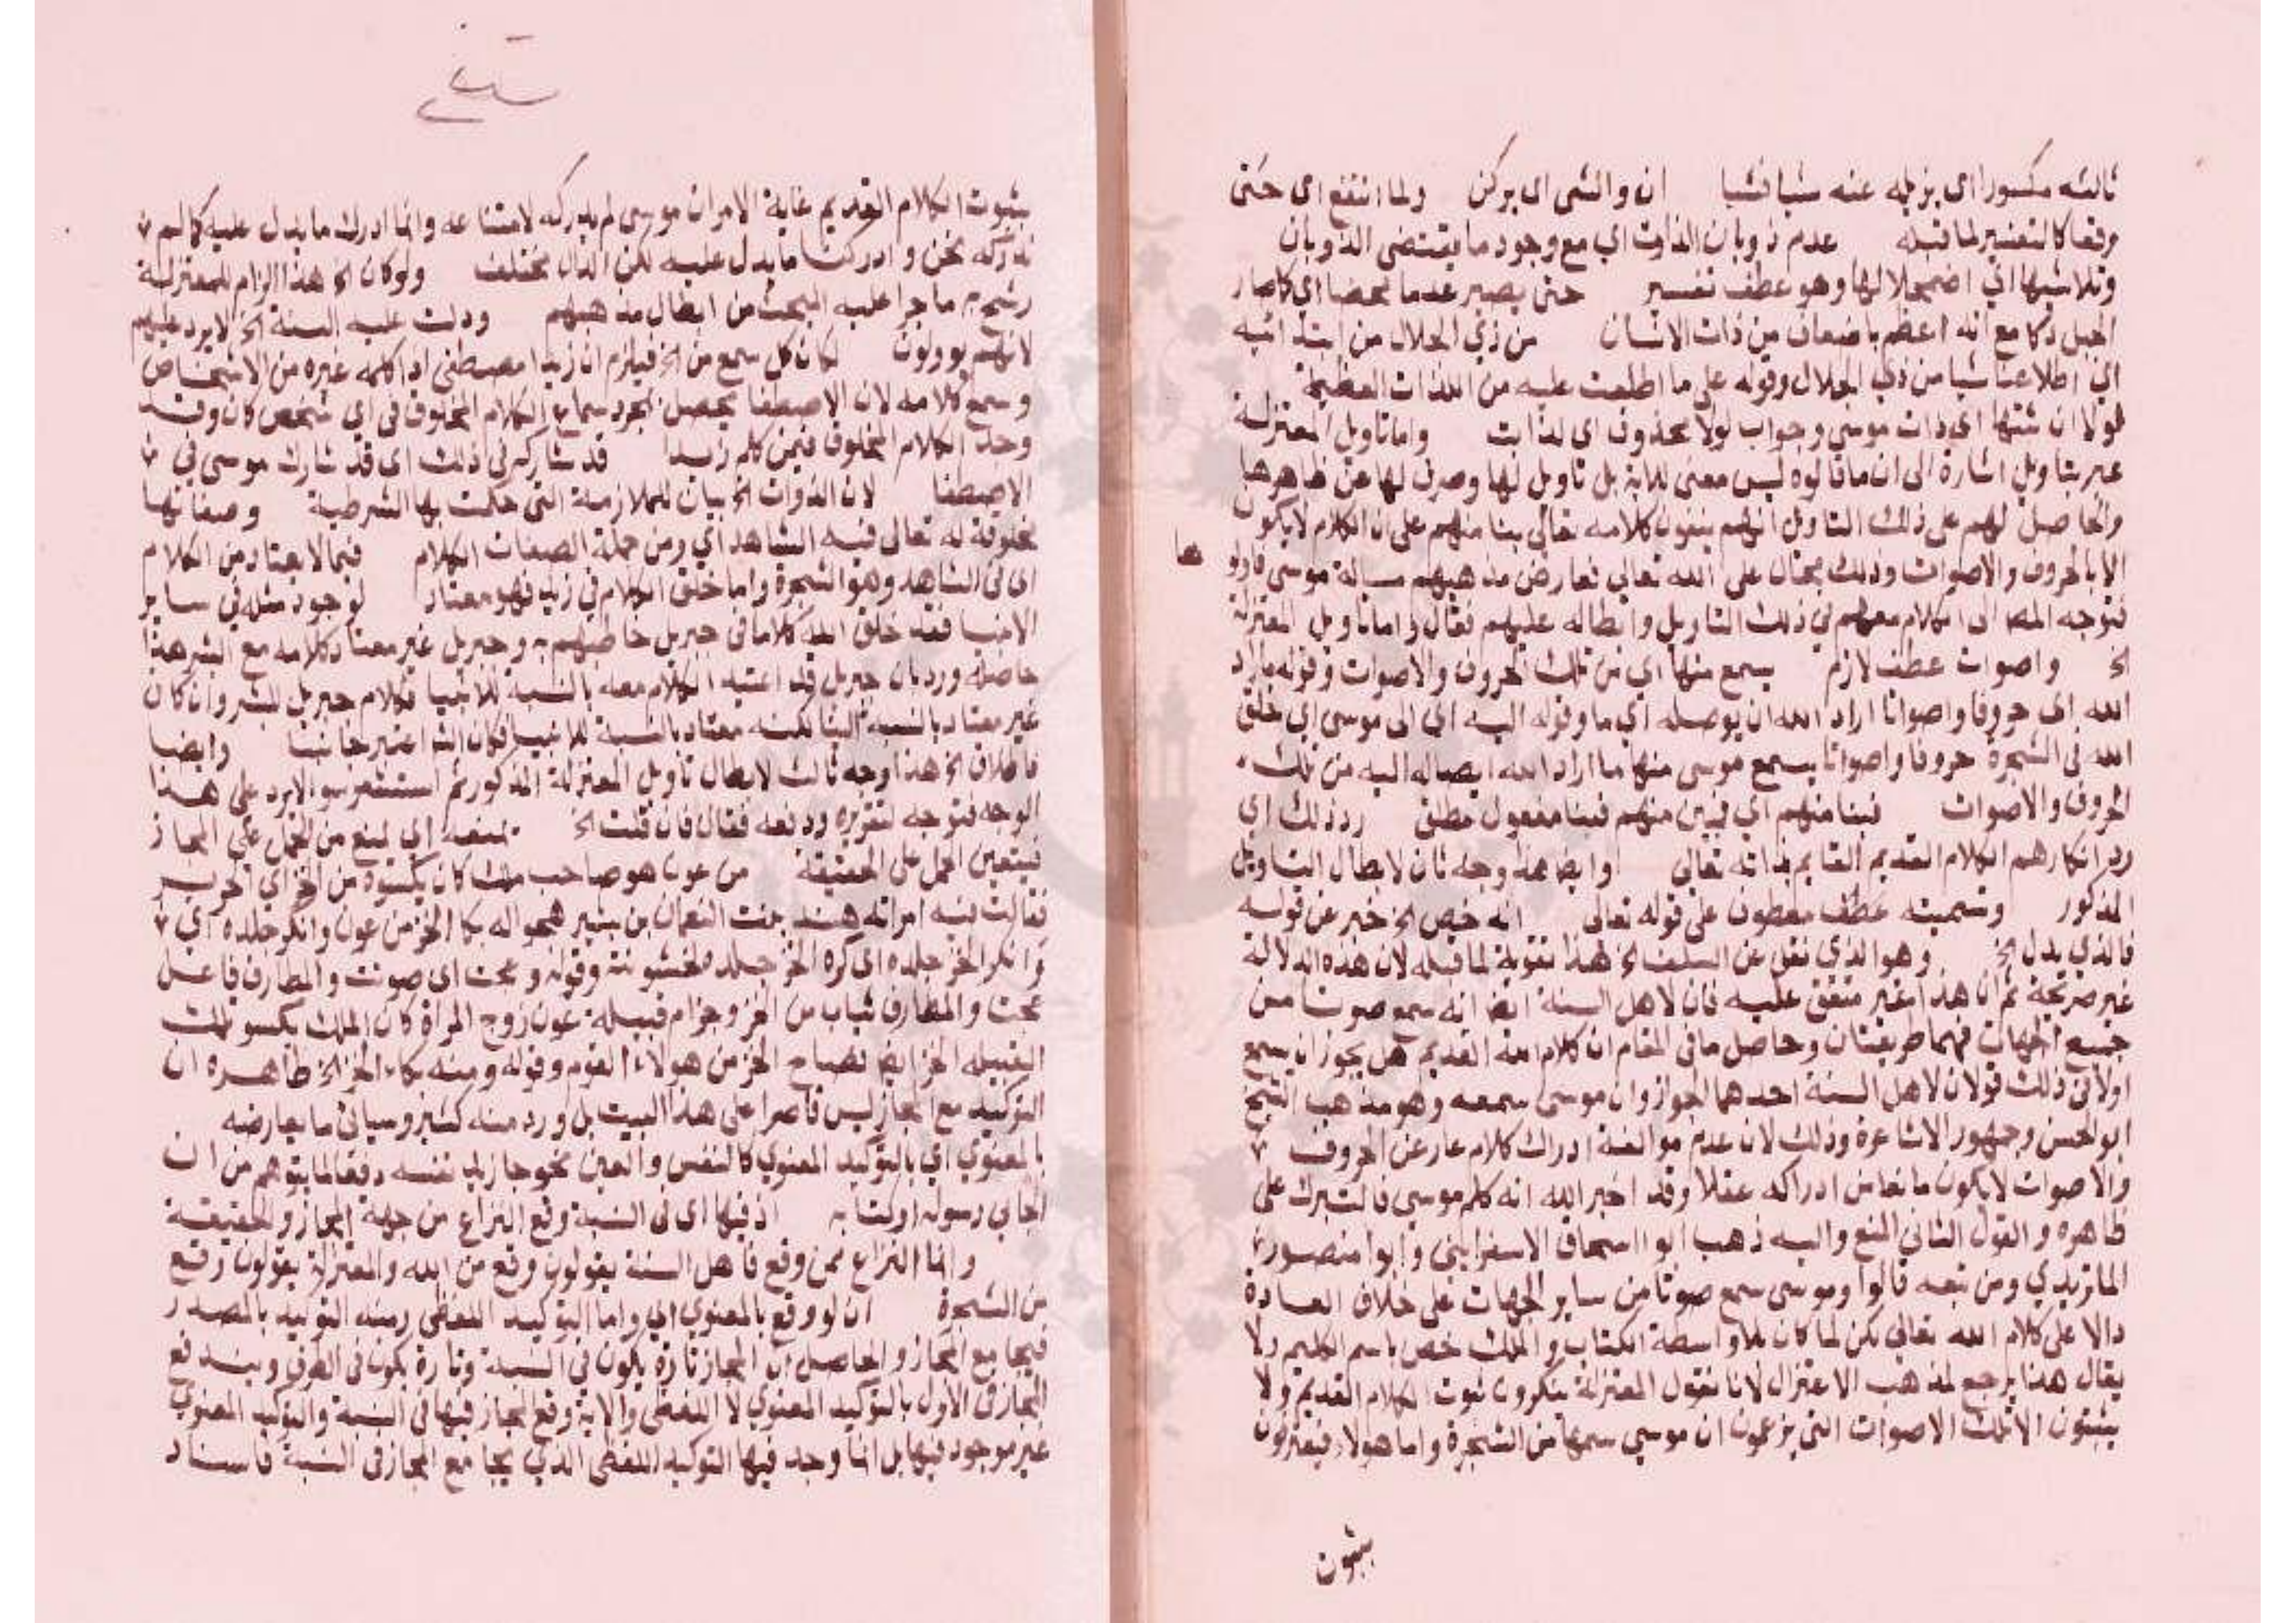 ثالثه مكسورا اى يزيله عنه شيا فشيا ان والشى اى يركن ولما انتفع اي حتى
وقفا كالتفسير لما قبله عدم ذوبان الذات اي مع وجود ما يقتضى الذوبان
وتلاشيها اي اضمحلالها وهو عطف تفسير حتى يصير عدما محضا اي كما صار
الجبل دكا مع انه اعظم باضعاف من ذات الانسان من ذي الجلال من ابتدائيه
اي اطلاعنا شيا من ذي الجلال وقوله على ما اطلعت عليه من اللذات العظيمة
لولا ان ثبتها اى ذات موسى وجواب لولا محذوف اى لذابت واما تاويل المعتزلة
عبر بتاويل اشارة الى ان ما قالوه ليس معنى للاية بل تاويل لها وصرف لها عن ظاهرها
والحاصل لهم على ذلك التاويل انهم ينفون كلامه تعالى بنا منهم على ان الكلام لا يكون
الا بالحروف والاصوات وذلك محال على الله تعالى تعارض مذهبهم مسالة موسى فاولو
ها
فتوجه المصا الى الكلام معهم في ذلك التاويل وابطاله عليهم فقال واما تاويل المعتزلة
الخ واصوات عطف لازم يسمع منها اي من تلك الحروف والاصوات وقوله ما اراد
الله اى حروفا واصواتا اراد الله ان يوصله اي ما وقوله اليه اي الى موسى اي خلق
الله فى الشجرة حروفا واصواتا يسمع موسى منها ما اراد الله ايصاله اليه من تلك
الحروف والاصوات فبنا منهم اي فبين منهم فبنا مفعول مطلق رد ذلك اي
رد انكارهم الكلام القديم القايم بذاته تعالى وايضا هذا وجه ثان لابطال التاويل
المذكور وتسميته عطف معطوف على قوله تعالى انه خص الخ خبر عن قوله
فالذي يدل الخ وهو الذي نقل عن السلف الخ هذا تقوية لما قبله لان هذه الدلالة
غير صريحة ثم ان هذا غير متفق عليه فان لاهل السنة ايضا انه سمع صوتا من
جميع الجهات فهما طريقتان وحاصل ما فى المقام ان كلام الله القديم هل يجوز ان يسمع
اولا فى ذلك قولان لاهل السنة احدهما الجواز وان موسى سمعه وهو مذهب الشيخ
ابو الحسن وجمهور الاشاعرة وذلك لان عدم موالفة ادراك كلام عار عن الحروف
والاصوات لا يكون مانعا من ادراكه عقلا وقد اخبر الله انه كلم موسى فالتبرك على
ظاهره والقول الثاني المنع واليه ذهب ابو اسحاق الاسفرايني وابوا منصور
الماتريدي ومن تبعه قالوا وموسى سمع صوتا من ساير الجهات على خلاف العادة
دالا على كلام الله تعالى لكن لما كان بلا واسطة الكتاب والملك خص باسم الكليم ولا
يقال هذا يرجع لمذهب الاعتزال لانا نقول المعتزلة ينكرون ثبوت الكلام القديم ولا
يثبتون الا تلك الاصوات التى يزعمون ان موسى سمعها من الشجرة واما هولا فيعترفون
بثبوت
بثبوت الكلام القديم غاية الامر ان موسى لم يدركه لامتناعه وانما ادرك ما يدل عليه كما لم
ندركه نحن وادركنا ما يدل عليه لكن الدال مختلف ولو كان الخ هذا الزام للمعتزلة
رشح به ما جرا عليه المبحث من ابطال مذهبهم ودلت عليه السنة الخ لا يرد عليهم
لانهم يوولون لكان كل سمع من الخ فيلزم ان زيدا مصطفى اذا كلمه غيره من الاشخاص
وسمع كلامه لان الاصطفا يحصل بمجرد سماع الكلام المخلوق فى اي شخص كان وقد
وجد الكلام المخلوق فيمن كلم زيدا قد شاركه فى ذلك اى قد شارك موسى في
الاصطفا لان الذوات الخ بيان للملازمة التى حكمت بها الشرطية وصفاتها
مخلوقة له تعالى فيه الشاهد اي ومن جملة الصفات الكلام فيما لا يعتاد من الكلام
اى فى الشاهد وهو الشجرة واما خلق الكلام في زيد فهو معتاد لوجود مثله في ساير
الانبيا فقد خلق الله كلاما فى جبريل خاطبهم به وجبريل غير معتاد كلامه مع البشر هذا
حاصله ورد بان جبريل قد اعتيد الكلام معه بالنسبة للانبيا فكلام جبريل للبشر وان كان
غير معتاد بالنسبة الينا لكنه معتاد بالنسبة للانبيا فكان الله اعتبر جانبنا وايضا
فاطلاق الخ هذا وجه ثالث لابطال تاويل المعتزلة المذكور ثم استشعر سوالا يرد على هذا
الوجه فتوجه لتقريره ودفعه فقال فان قلت الخ تمنعه اي تمنع من الحمل على المجاز
فيتعين الحمل على الحقيقة من عوف هو صاحب ملك كان يكسوه من الخز اي الحرير
فقالت فيه امراته هند بنت النعمان بن بشير هجوا له بكا الخز من عوف وانكر جلده اي
وانكر الخز جلده اى كره الخز جلده لخشونته وقوله وعجت اى صوتت والمطارف فاعل
عجت والمطارف ثياب من الخز وجذام قبيلة عوف زوج المراة كان الملك يكسو تلك
القبيله الخز ايضا فصاح الخز من هولاء القوم وقوله ومنه بكاء الخز الخ ظاهره ان
التوكيد مع المجاز ليس قاصرا على هذا البيت بل ورد منه كثير وسياتى ما يعارضه
بالمعنوي اي بالتوكيد المعنوي كالنفس والعين نحو جا زيد نفسه دفعا لما يتوهم من ان
الجايي رسوله او كتابه اذ فيها اى فى النسبة وقع النزاع من جهة المجاز والحقيقة
وانما النزاع ممن وقع فاهل السنة يقولون وقع من الله والمعتزلة يقولون وقع
من الشجرة ان لو وقع بالمعنوي اي واما التوكيد اللفظى ومنه التوكيد بالمصدر
فيجامع المجاز والحاصل ان المجاز تارة يكون فى النسبة وتارة يكون فى الطرف ويندفع
المجاز فى الاول بالتوكيد المعنوي لا اللفظى والاية وقع المجاز فيها فى النسبة والتوكيد المعنوي
غير موجود فيها بل انما وجد فيها التوكيد اللفظى الذي يجامع المجاز فى النسبة فاسناد